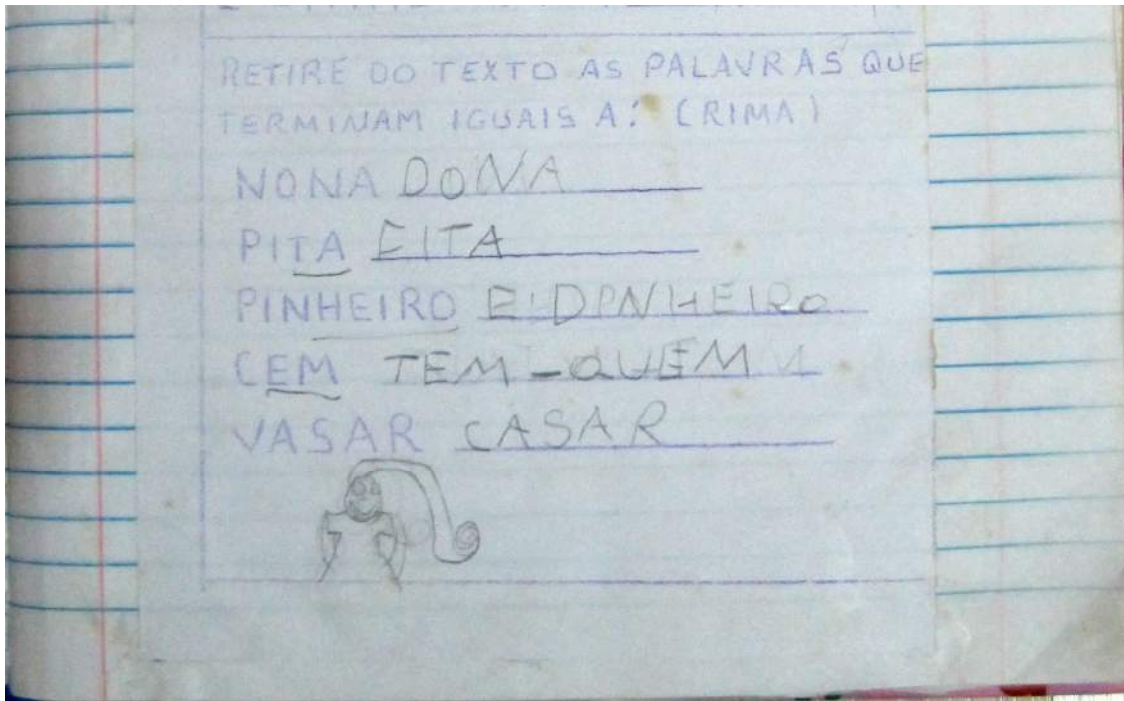 RETIRE DO TEXTO AS PALAVRAS QUE
TERMINAM IGUAIS A: (RIMA)
NONA DONA
PITA EITA
PINHEIRO E DPNHEIRO
CEM TEM-QUEM
VASAR CASAR